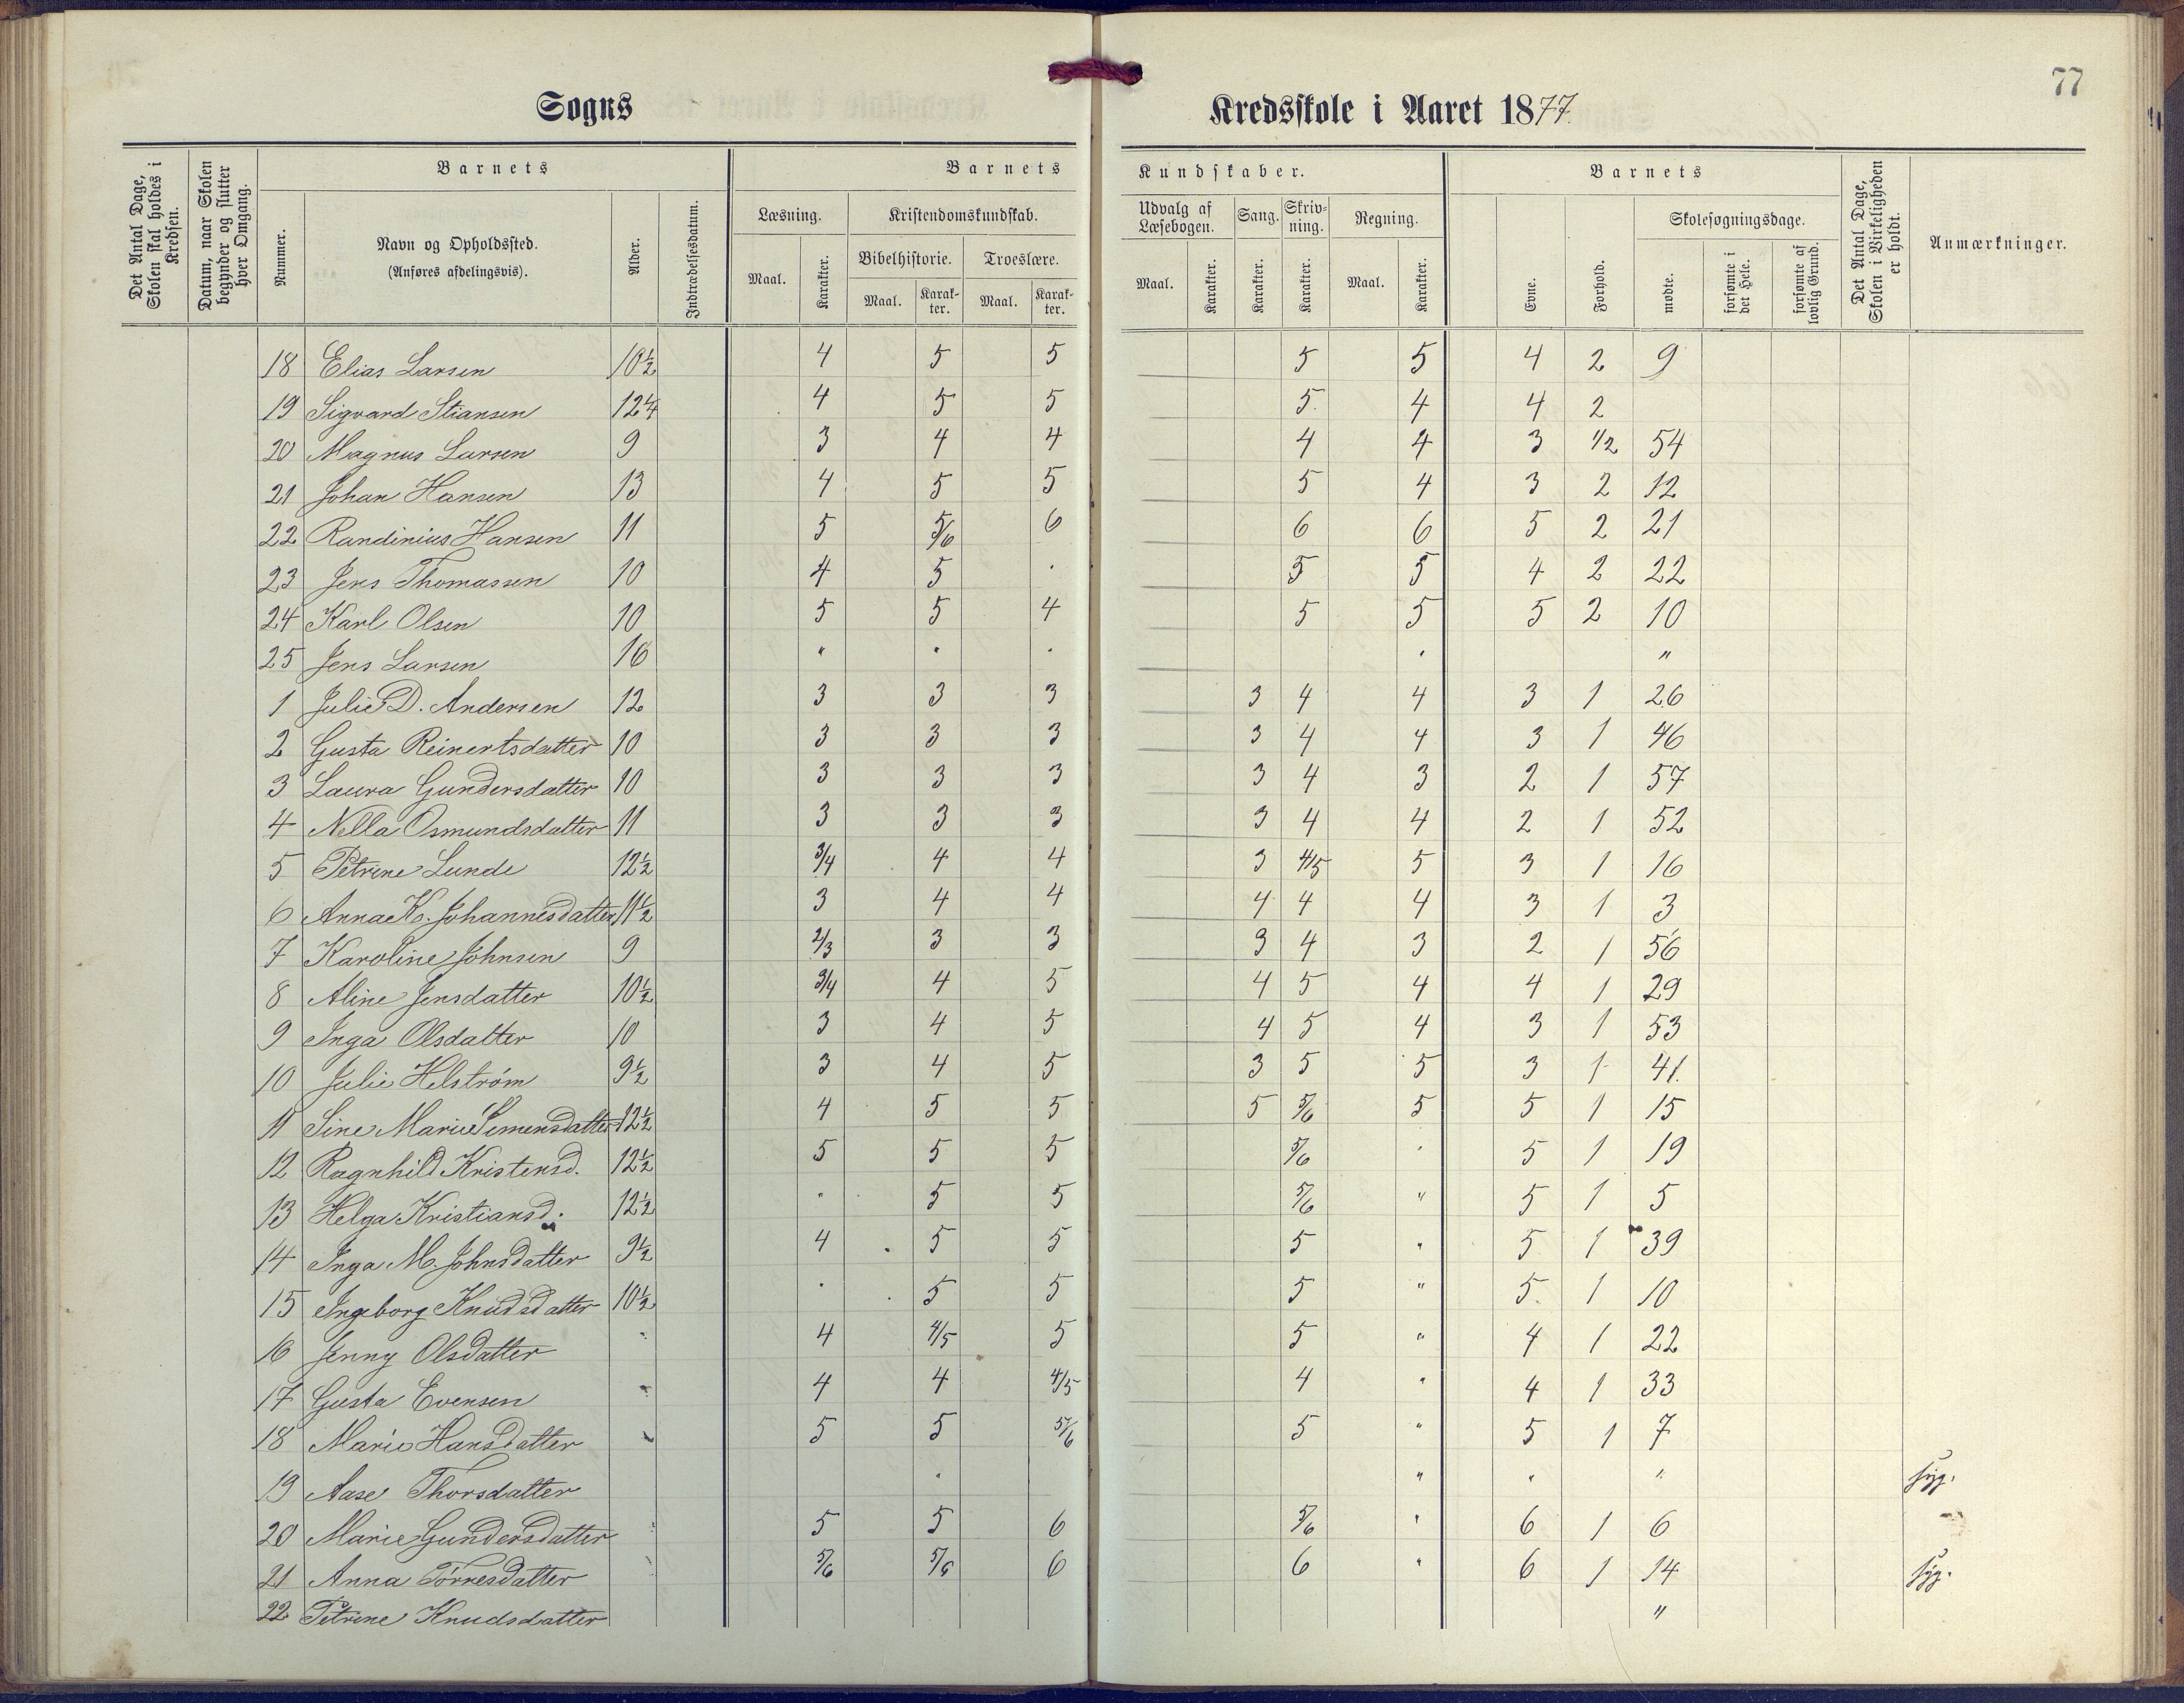 77
Sogns Kredsskole i Aaret 1877.
Det Antal Dage, Skolen skal holdes i Kredsen.
Datum, naar Skolen begynder og slutter hver Omgang.
Barnets
Nummer.
Navn og Opholdssted.
(Anføres afdelingsvis).
Alder.
Indtrædelsesdatum.
Barnets Kundskaber.
Læsning.
Maal.
Karakter.
Kristendomskundskab.
Bibelhistorie.
Maal.
Karakter.
Troeslære.
Maal.
Karakter.
Udvalg af Læsebogen.
Maal.
Karakter.
Sang.
Karakter.
Skrivning.
Karakter.
Regning.
Maal.
Karakter.
Barnets
Evne.
Forhold.
Skolesøgningsdage.
mødte.
forsømte i det Hele.
forsømte af lovlig Grund.
Det Antal Dage, Skolen i Virkeligheden er holdt.
Anmærkninger.
18 Elias Larsen 10½ 4 5 5 5 5 4 2 9
19 Sigvard Stiansen 12¼ 4 5 5 5 4 4 2
20 Magnus Larsen 9 3 4 4 4 4 3 1/2 54
21 Johan Hansen 13 4 5 5 5 4 3 2 12
22 Randinius Hansen 11 5 5/6 6 6 6 5 2 21
23 Jens Thomassen 10 4 5 . 5 5 4 2 22
24 Karl Olsen 10 5 5 4 5 5 5 2 10
25 Jens Larsen 16 " " . . "
1 Julie D. Andersen 12 3 3 3 3 4 4 3 1 26
2 Gusta Reinertsdatter 10 3 3 3 3 4 4 3 1 46
3 Laura Gundersdatter 10 3 3 3 3 4 3 2 1 57
4 Nella Osmundsdatter 11 3 3 3 3 4 4 2 1 52
5 Petrine Lunde 12½ 3/4 4 4 3 4/5 5 3 1 16
6 Anna K. Johannesdatter 11½ 3 4 4 4 4 4 3 1 3
7 Karoline Johnsen 9 2/3 3 3 3 4 3 2 1 56
8 Aline Jensdatter 10½ 3/4 4 5 4 5 4 4 1 29
9 Inga Olsdatter 10 3 4 5 4 5 4 3 1 53
10 Julie Helstrøm 9½ 3 4 5 3 5 5 3 1 41.
11 Sine Marie Simensdatter 12½ 4 5 5 5 5/6 5 5 1 15
12 Ragnhild Kristensd. 12½ 5 5 5 5/6 . 5 1 19
13 Helga Kristiansd. 12½ " 5 5 5/6 " 5 1 5
14 Inga M. Johnsdatter 9½ 4 5 5 5 " 5 1 39
15 Ingeborg Knudsdatter 10½ . 5 5 5 " 5 1 10
16 Jenny Olsdatter " 4 4/5 5 5 " 4 1 22
17 Gusta Evensen " 4 4 4/5 4 " 4 1 33
18 Marie Hansdatter " 5 5 5/6 5 " 5 1 7
19 Aase Thorsdatter " " " " syg.
20 Marie Gundersdatter " 5 5 6 5/6 " 6 1 6
21 Anna Tørresdatter " 5/6 5/6 6 6 " 6 1 14 syg.
22 Petrine Knudsdatter "